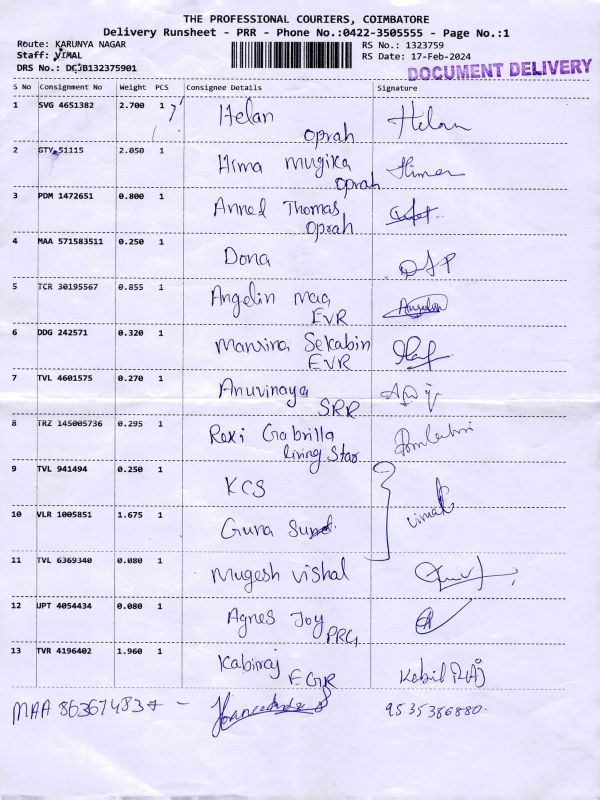 THE PROFESSIONAL COURIERS, COIMBATORE
Delivery Runsheet - PRR - Phone No.:0422-3505555 - Page No.:1
Route: KARUNYA NAGAR RS No.: 1323759
Staff: VIMAL RS Date: 17-Feb-2024
DRS No.: DCJB132375901
DOCUMENT DELIVERY
S No Consignment No Weight PCS Consignee Details Signature
1 SVG 4651382 2.700 1 Helan Helan
Oprah
2 GTY 51115 2.050 1 Hima mugika Hima
Oprah
3 PDM 1472651 0.800 1 Anned Thomas
Oprah
4 MAA 571583511 0.250 1 Dona
5 TCR 30195567 0.855 1 Angelin mag Angelin
EVR
6 DDG 242571 0.320 1 Mansina Sekabin
EVR
7 TVL 4601575 0.270 1 Anuvinaya
SRR
8 TRZ 145005736 0.295 1 Rexi Gabrilla
living Star
9 TVL 941494 0.250 1 KCS
Vimal
10 VLR 1005851 1.675 1 Guna
11 TVL 6369340 0.080 1 Mugesh vishal
12 UPT 4054434 0.080 1 Agnes Joy
PRG
13 TVR 4196402 1.960 1 Kabiraj Kabil RAj
EGR
MAA 86367483 - 9535386880.